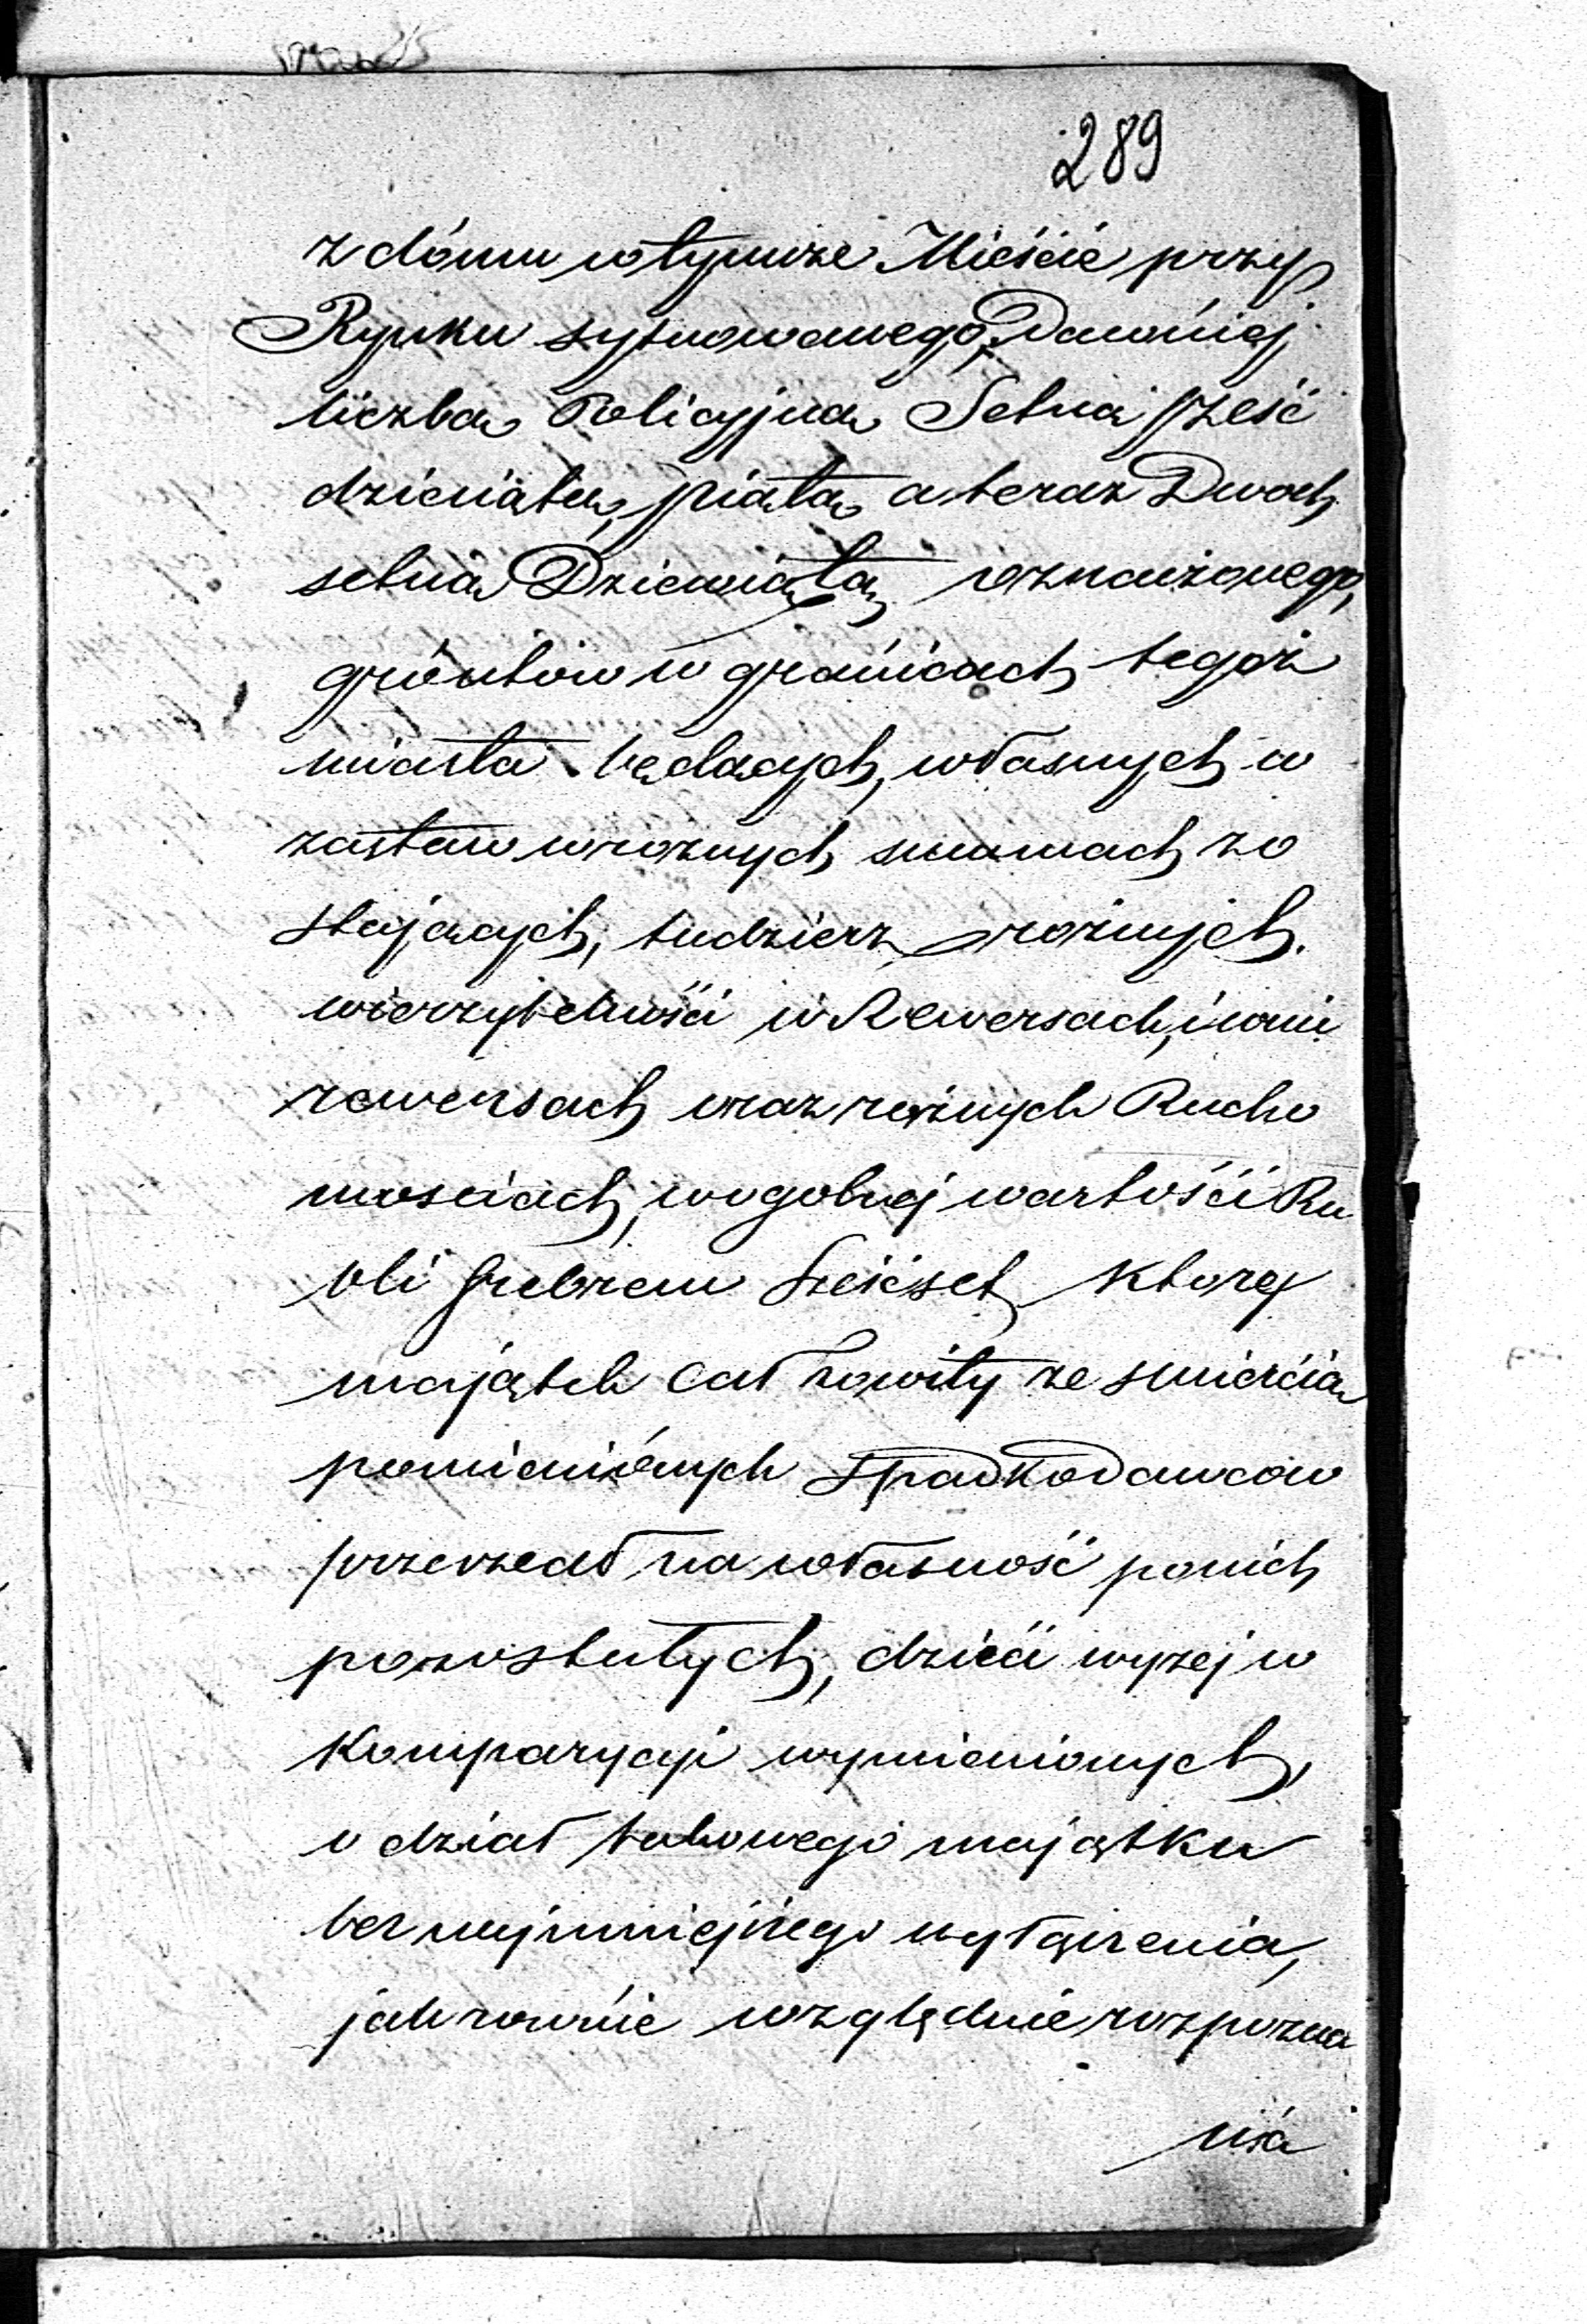 289
z dómu w tymże Mieście przy
Rynku sytuowanego, Dawniej
liczbą Policyjną Setną sześć
dziesiątą, piątą a teraz Dwoch
setną Dziewiątą oznaczonego,
gróntów w granicach tegoż
miasta będących, własnych w
zastaw w roznych summach zo
stających, tudzierz rożnych
wierzytelności w Rewersach, i won
rewersach oraz rożnych Rucho
mosciach, w ogolnej wartości Ru
bli Srebrem Sześćset, ktory
majątek całkowity ze smiercią
pomienionych Spadkodawców
przeszedł na własność ponich
pozostałych, dzieci wyzej w
Komparycyi wymienionych,
o dział takowego majątku
bez najmniejszego wyłączenia,
jak rownie względnie rozpozna
nia